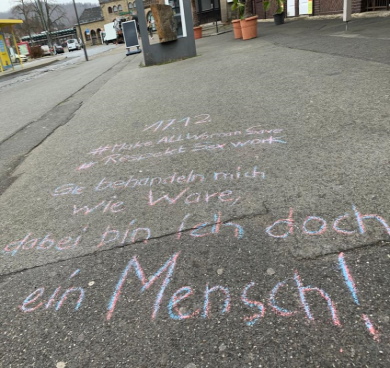 17.12
#Make All Woman Save
# Respect Sex work
Sie behandeln mich
wie Ware,
dabei bin ich doch
ein Mensch!